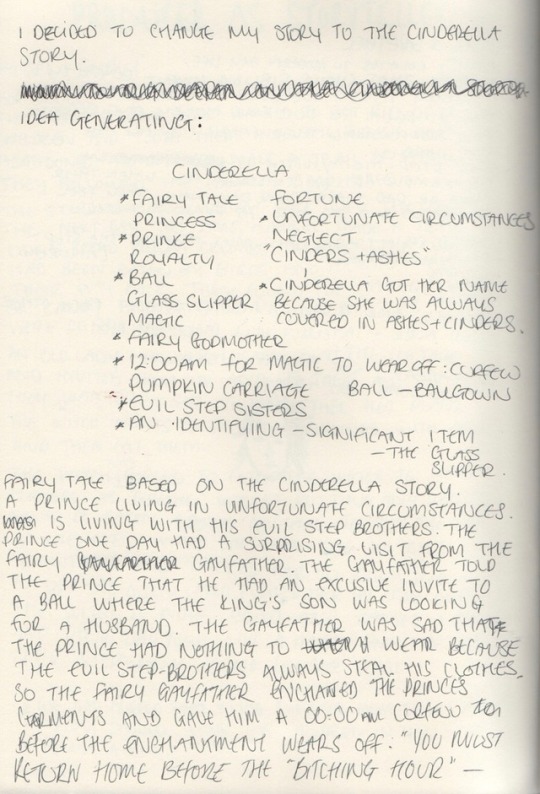 I DECIDED TO CHANGE MY STORY TO THE CINDERELLA
STORY.
IDEA GENERATING:
CINDERELLA
* FAIRY TALE
PRINCESS
* PRINCE
ROYALTY
* BALL
GLASS SLIPPER
MAGIC
* FAIRY GODMOTHER
* 12:00AM FOR MAGIC TO WEAR OFF: CURFEW
PUMPKIN CARRIAGE BALL – BALLGOWN
* EVIL STEP SISTERS
* AN IDENTIFYING – SIGNIFICANT ITEM
– THE GLASS
SLIPPER.
FORTUNE
* UNFORTUNATE CIRCUMSTANCES
NEGLECT
"CINDERS + ASHES"
* CINDERELLA GOT HER NAME
BECAUSE SHE WAS ALWAYS
COVERED IN ASHES + CINDERS.
FAIRY TALE BASED ON THE CINDERELLA STORY.
A PRINCE LIVING IN UNFORTUNATE CIRCUMSTANCES.
IS LIVING WITH HIS EVIL STEP BROTHERS. THE
PRINCE ONE DAY HAD A SURPRISING VISIT FROM THE
FAIRY GAYFATHER. THE GAYFATHER TOLD
THE PRINCE THAT HE HAD AN EXCUSIVE INVITE TO
A BALL WHERE THE KING'S SON WAS LOOKING
FOR A HUSBAND. THE GAYFATHER WAS SAD THAT
THE PRINCE HAD NOTHING TO WEAR BECAUSE
THE EVIL STEP-BROTHERS ALWAYS STEAL HIS CLOTHES.
SO THE FAIRY GAYFATHER ENCHANTED THE PRINCES
GARMENTS AND GAVE HIM A 00:00AM CURFEW
BEFORE THE ENCHANTMENT WEARS OFF: "YOU MUST
RETURN HOME BEFORE THE "BITCHING HOUR" –